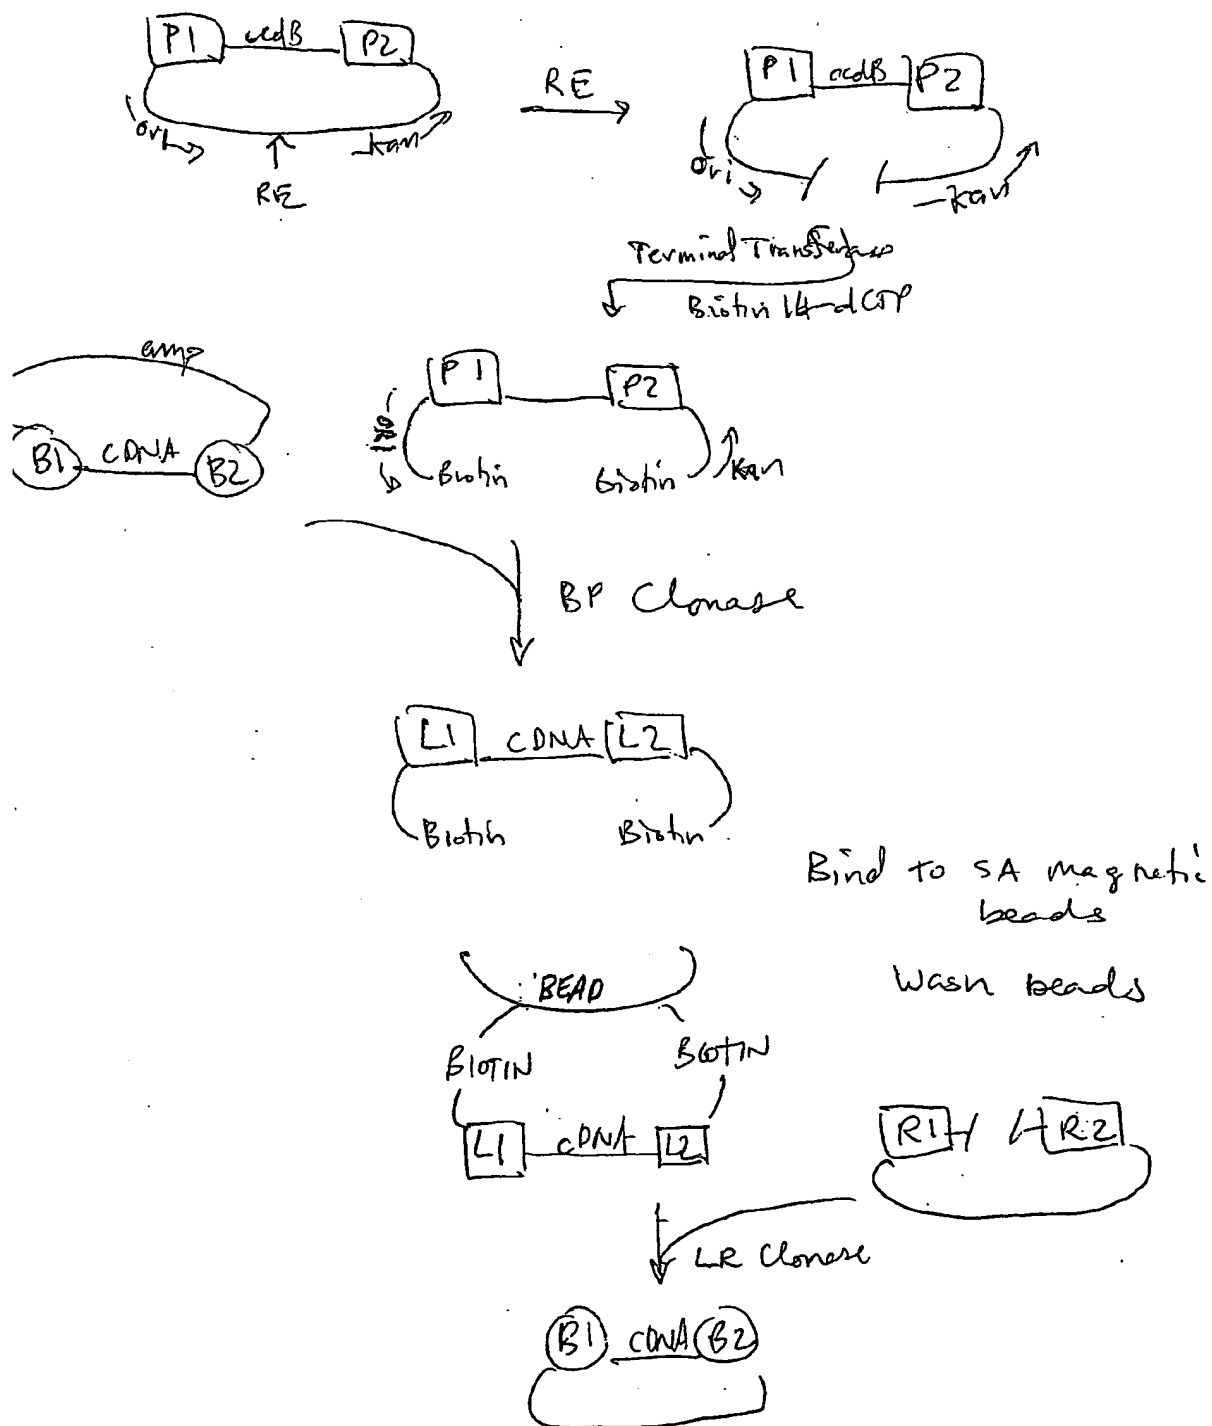 P1 ccdB P2
ori
kan
RE
RE
P1 ccdB P2
ori
kan
Terminal Transferase
Biotin 14-dCTP
amp
B1 cDNA B2
P1 P2
ORI
Biotin Biotin
Kan
BP Clonase
L1 CDNA L2
Biotin Biotin
Bind to SA magnetic
beads
Wash beads
BEAD
BIOTIN BIOTIN
L1 cDNA L2
R1 R2
LR Clonase
B1 CDNA B2